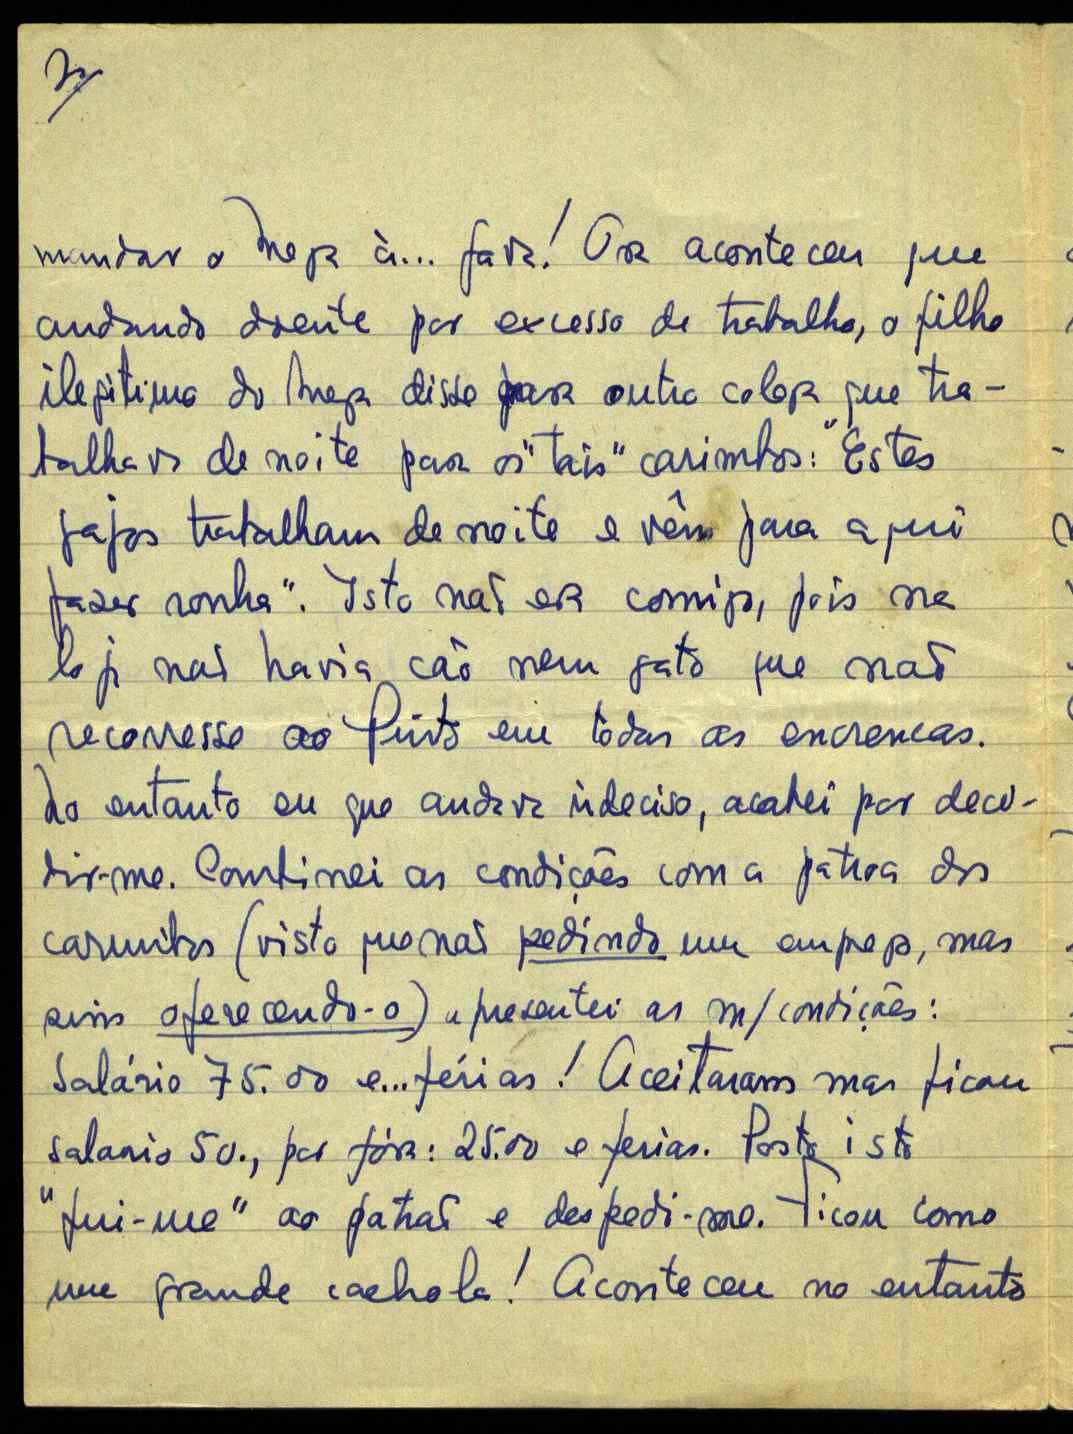 mandar o Nega à... fava! Ora aconteceu que
andando doente por excesso de trabalho, o filho
ilegitimo do Nega disse para outro colega que tra-
balhava de noite para os "tais" carimbos: "Estes
gajos trabalham de noite e vêm para aqui
fazer ronha". Isto não era comigo, pois na
loja não havia cão nem gato que não
recorresse ao Pinto em todas as encrencas.
No entanto eu que andava indeciso, acabei por deci-
dir-me. Combinei as condições com a patroa dos
carimbos (visto que não pedindo um emprego, mas
sim oferecendo-o) apresentei as m/condições:
Salário 75.00 e... férias! Aceitaram mas ficou
salario 50., por fóra: 25.00 e ferias. Posto isto
"fui-me" ao patrão e despedi-me. Ficou como
um grande cachola! Aconteceu no entanto